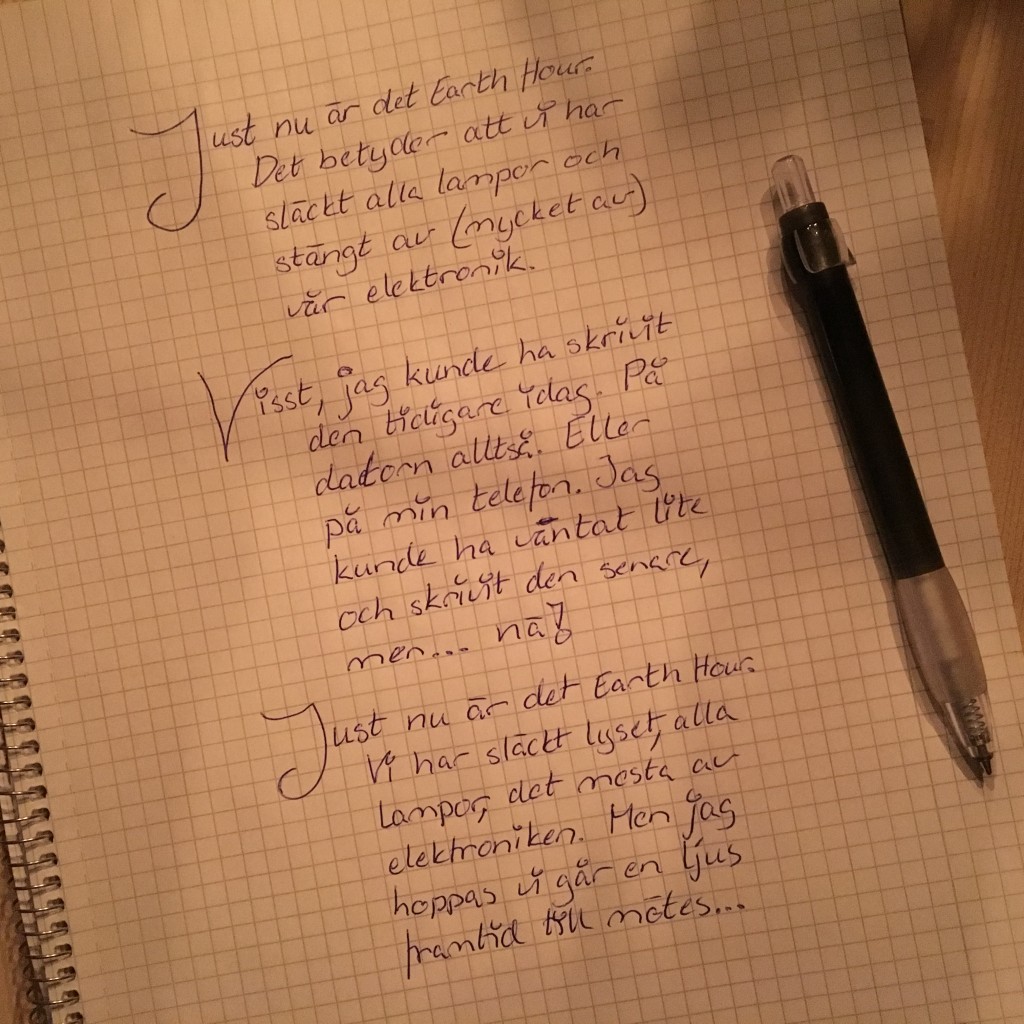 Just nu är det Earth Hour.
Det betyder att vi har
släckt alla lampor och
stängt av (mycket av)
vår elektronik.
Visst, jag kunde ha skrivit
den tidigare idag. På
datorn alltså. Eller
på min telefon. Jag
kunde ha väntat lite
och skrivit den senare,
men... nä!
Just nu är det Earth Hour.
Vi har släckt lyset, alla
lampor, det mesta av
elektroniken. Men jag
hoppas vi går en ljus
framtid till mötes...